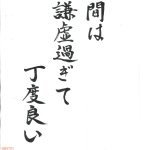 間は
謙虚過ぎて
丁度良い